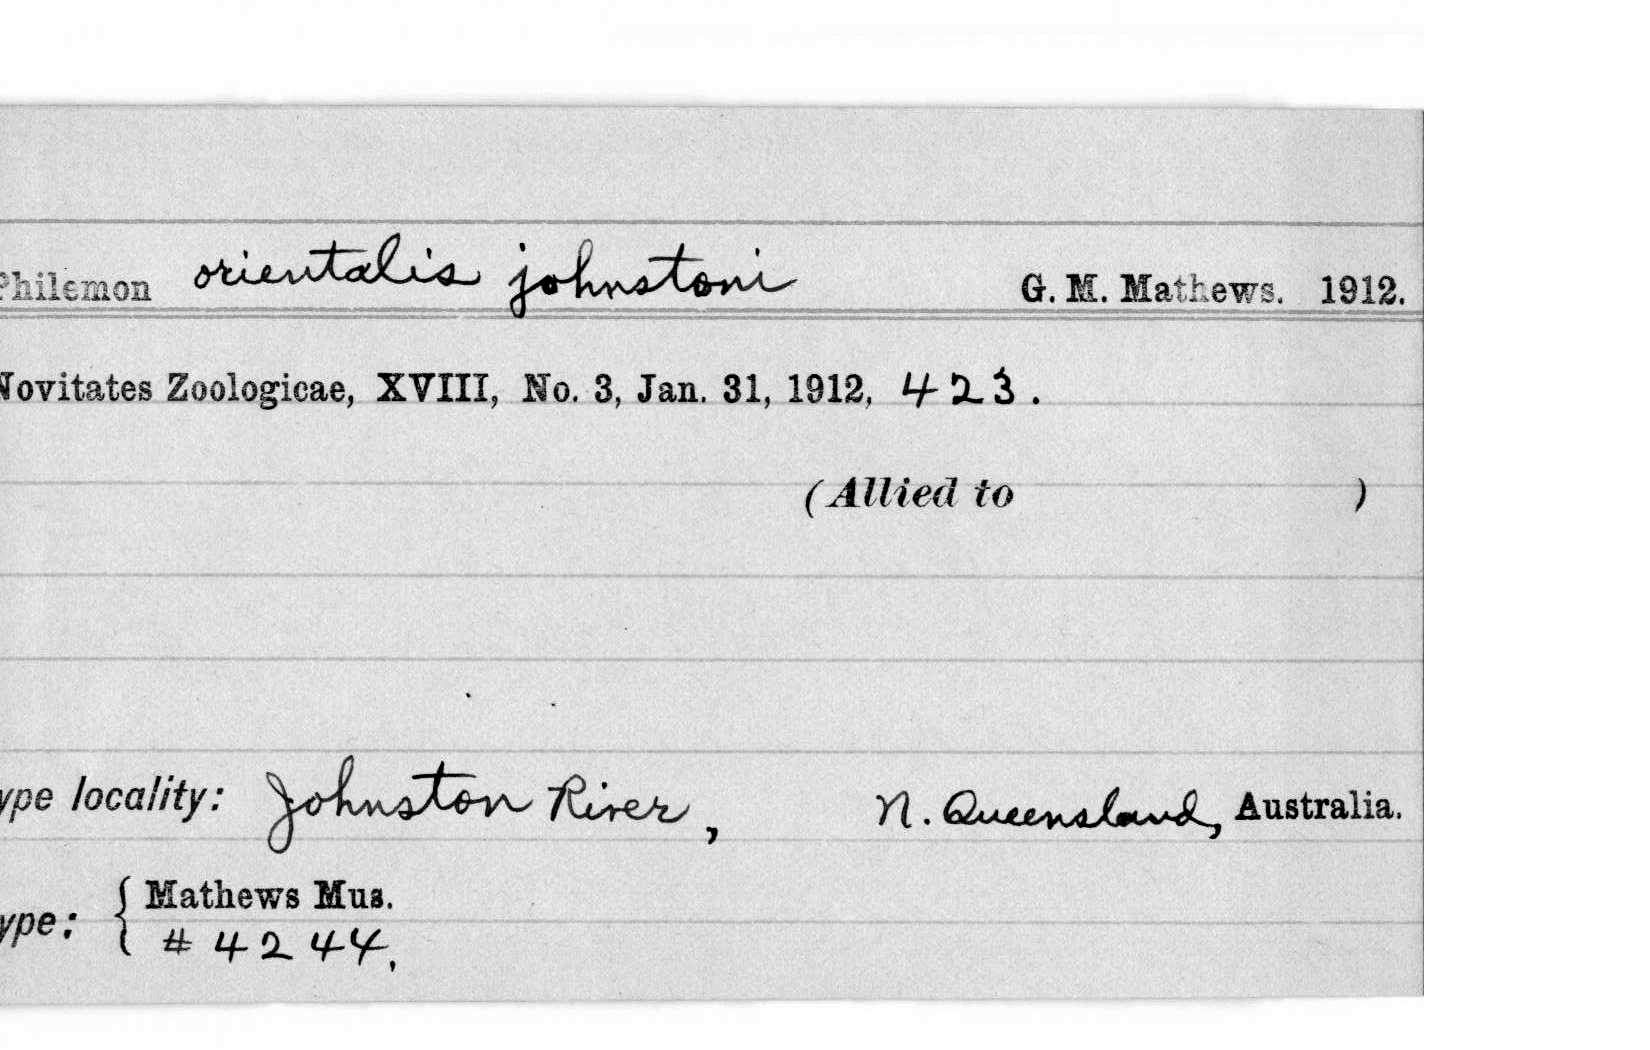 Philemon orientalis johnstoni G. M. Mathews. 1912.
Novitates Zoologicae, XVIII, No. 3, Jan. 31, 1912, 423.
(Allied to )
ype locality: Johnston River, N. Queensland, Australia.
Mathews Mus.
ype: { # 4244.